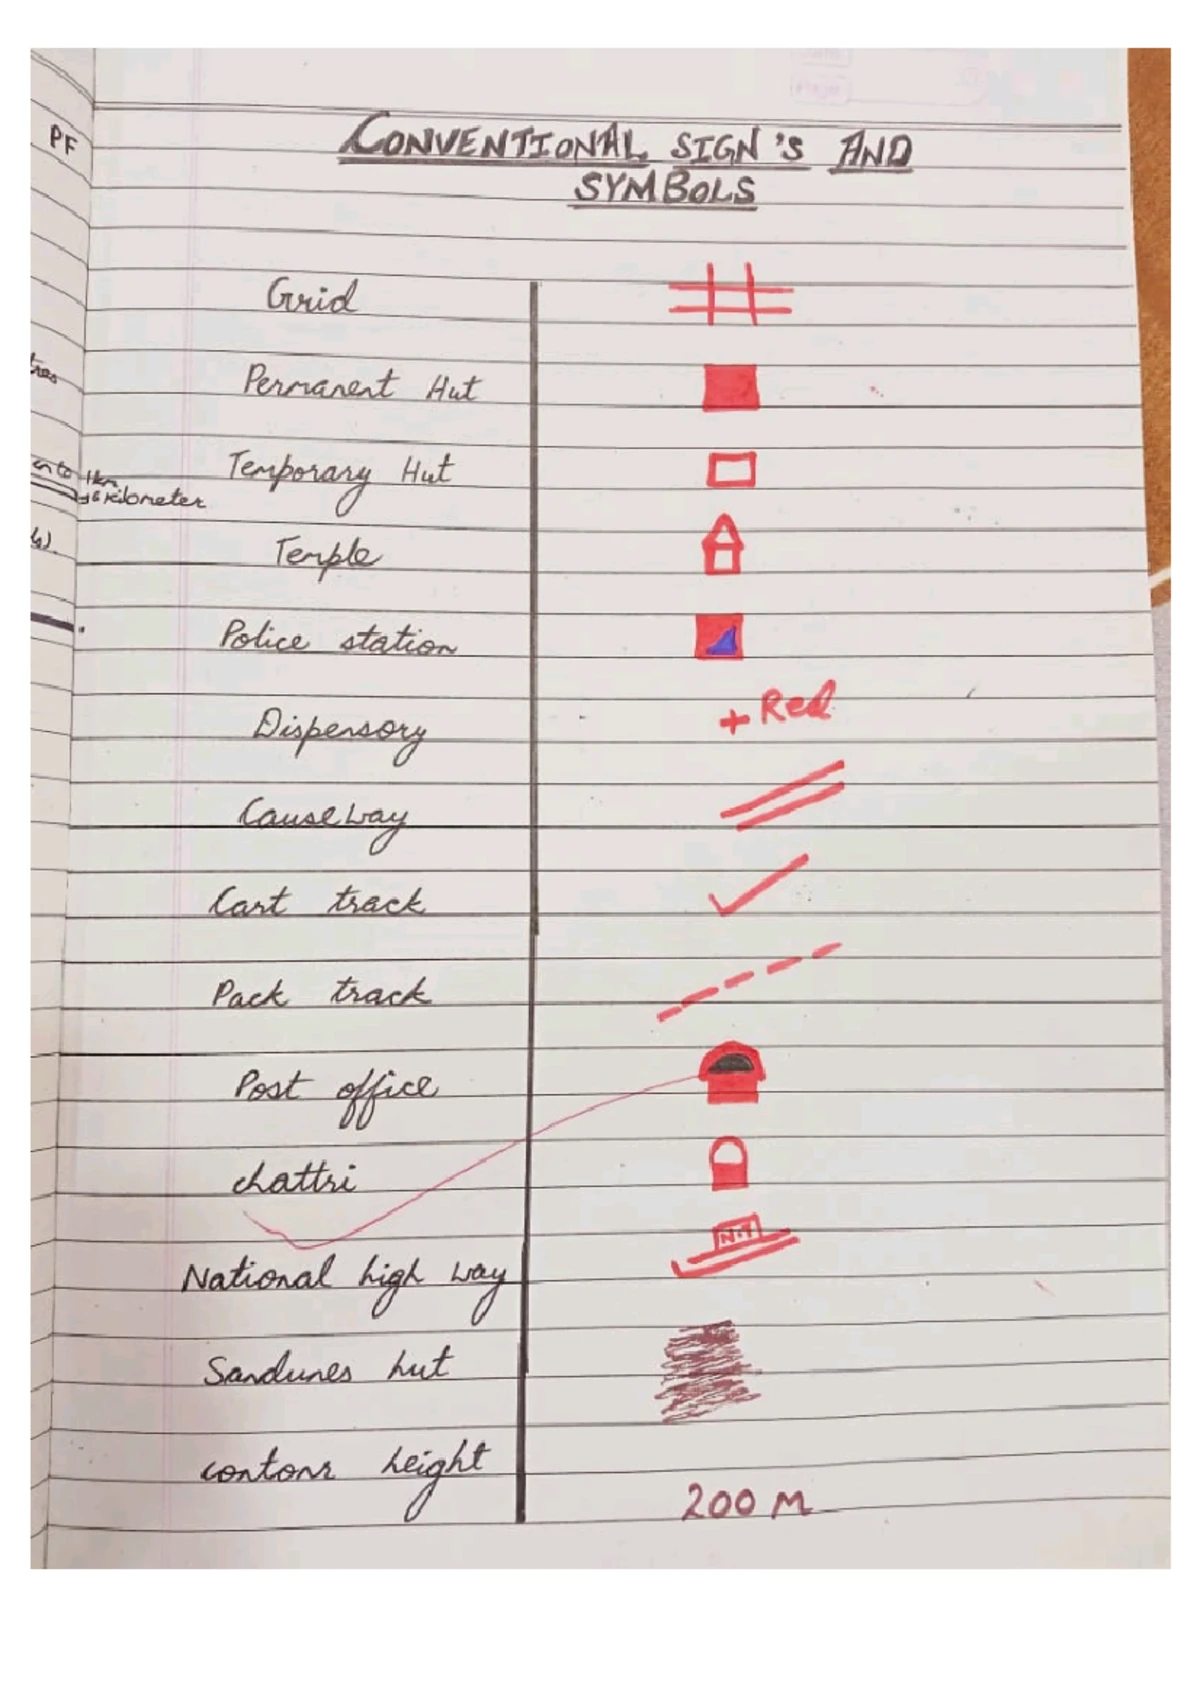 PF
CONVENTIONAL SIGN'S AND
SYMBOLS
Grid
Permanent Hut
tres
Temporary Hut
1km
kilometer
Temple
Police station
Dispensory + Red
Causeway
Cart track
Pack track
Post office
chattri
National high way
Sandunes hut
contour height
200 M